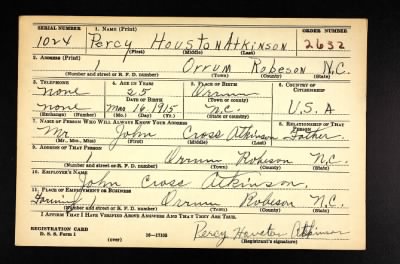 SERIAL NUMBER 1. NAME (Print) ORDER NUMBER
1024 Percy Houston Atkinson 2632
(First) (Middle) (Last)
2. ADDRESS (Print)
1 Orrum Robeson N.C.
(Number and street or R. F. D. number) (Town) (County) (State)
3. TELEPHONE 4. AGE IN YEARS 5. PLACE OF BIRTH 6. COUNTRY OF CITIZENSHIP
none 25 Orrum
DATE OF BIRTH (Town or county)
none Mar 16 1915 N.C. U.S.A
(Exchange) (Number) (Mo.) (Day) (Yr.) (State or country)
7. NAME OF PERSON WHO WILL ALWAYS KNOW YOUR ADDRESS 8. RELATIONSHIP OF THAT PERSON
Mr John Cross Atkinson Father
(Mr., Mrs., Miss) (First) (Middle) (Last)
9. ADDRESS OF THAT PERSON
1 Orrum Robeson N.C.
(Number and street or R. F. D. number) (Town) (County) (State)
10. EMPLOYER'S NAME
John Cross Atkinson.
11. PLACE OF EMPLOYMENT OR BUSINESS
Farming 1 Orrum Robeson N.C.
(Number and street or R. F. D. number) (Town) (County) (State)
I AFFIRM THAT I HAVE VERIFIED ABOVE ANSWERS AND THAT THEY ARE TRUE.
REGISTRATION CARD
D. S. S. Form 1 16—17105 Percy Houston Atkinson
(over) (Registrant's signature)